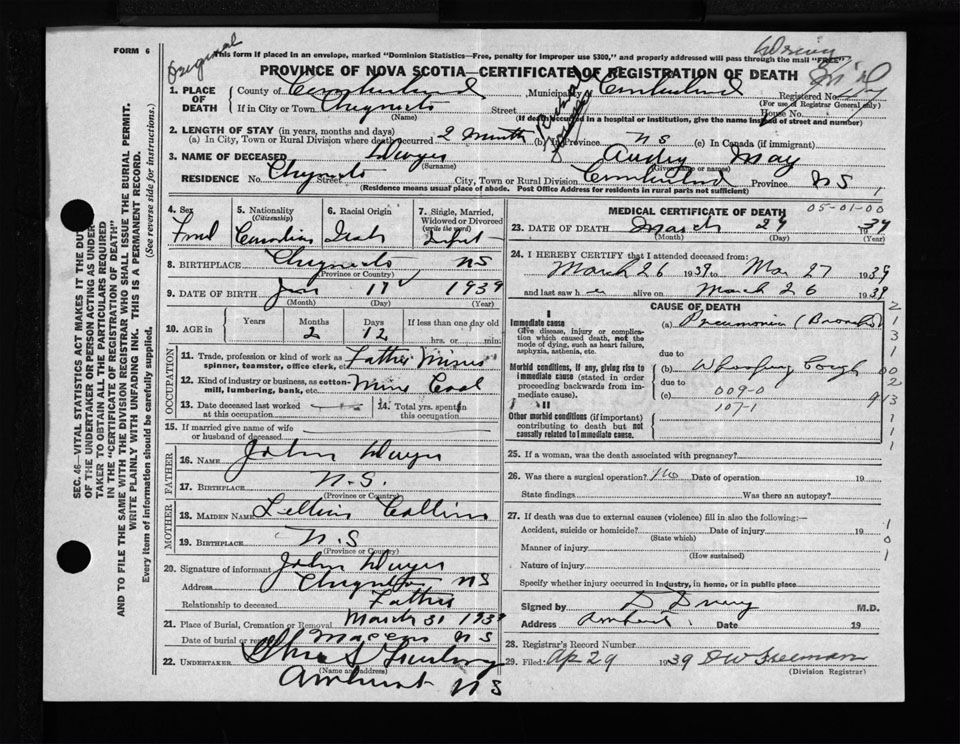 FORM 6
Original
This form if placed in an envelope, marked "Dominion Statistics—Free, penalty for improper use $300," and properly addressed will pass through the mail "FREE"
PROVINCE OF NOVA SCOTIA—CERTIFICATE OF REGISTRATION OF DEATH
1. PLACE OF DEATH County of Cumberland Municipality Cumberland Registered No.
(For use of Registrar General only)
If in City or Town Chignecto Street House No.
(Name) (If death occurred in a hospital or institution, give the name instead of street and number)
2. LENGTH OF STAY (in years, months and days)
(a) In City, Town or Rural Division where death occurred 2 Months (b) In Province NS (c) In Canada (if immigrant)
3. NAME OF DECEASED Dwyer Audry May
(Surname) (Given name or names)
RESIDENCE No. Chignecto Street City, Town or Rural Division Cumberland Province NS
(Residence means usual place of abode. Post Office Address for residents in rural parts not sufficient)
4. Sex 5. Nationality (Citizenship) 6. Racial Origin 7. Single, Married, Widowed or Divorced (write the word)
Canadian Irish Infant
8. BIRTHPLACE Chignecto NS
(Province or Country)
9. DATE OF BIRTH Jan 17 1939
(Month) (Day) (Year)
10. AGE in Years Months Days If less than one day old
2 12 hrs. or min.
OCCUPATION
11. Trade, profession or kind of work as spinner, teamster, office clerk, etc. Father Miner
12. Kind of industry or business, as cotton-mill, lumbering, bank, etc. Mine Coal
13. Date deceased last worked at this occupation 14. Total yrs. spent in this occupation
15. If married give name of wife or husband of deceased
FATHER
16. NAME John Dwyer
17. BIRTHPLACE N.S.
(Province or Country)
MOTHER
18. MAIDEN NAME Collins
19. BIRTHPLACE N.S
(Province or Country)
20. Signature of informant John Dwyer
Address Chignecto NS
Relationship to deceased Father
21. Place of Burial, Cremation or Removal March 31 1939
Date of burial or removal Maccan NS
22. UNDERTAKER
(Name and address)
Amherst NS
MEDICAL CERTIFICATE OF DEATH
05-01-00
23. DATE OF DEATH March 29 1939
(Month) (Day) (Year)
24. I HEREBY CERTIFY that I attended deceased from:
March 26 1939 to Mar 27 1939
and last saw her alive on March 26 1939
CAUSE OF DEATH
I
Immediate cause
Give disease, injury or complication which caused death, not the mode of dying, such as heart failure, asphyxia, asthenia, etc.
(a) Pneumonia (Broncho)
due to
Morbid conditions, if any, giving rise to immediate cause (stated in order proceeding backwards from immediate cause).
(b) Whooping Cough
due to
009-0
(c)
107-1
II
Other morbid conditions (if important) contributing to death but not causally related to immediate cause.
25. If a woman, was the death associated with pregnancy?
26. Was there a surgical operation? No Date of operation 19
State findings Was there an autopsy?
27. If death was due to external causes (violence) fill in also the following:—
Accident, suicide or homicide? Date of injury 19
(State which)
Manner of injury
(How sustained)
Nature of injury
Specify whether injury occurred in industry, in home, or in public place
Signed by M.D.
Address Amherst Date 19
28. Registrar's Record Number
29. Filed: Ap 29 1939 DW Freeman
(Division Registrar)
SEC. 46—VITAL STATISTICS ACT MAKES IT THE DUTY
OF THE UNDERTAKER OR PERSON ACTING AS UNDERTAKER TO OBTAIN ALL THE PARTICULARS REQUIRED
IN THE "CERTIFICATE OF REGISTRATION OF DEATH"
AND TO FILE THE SAME WITH THE DIVISION REGISTRAR WHO SHALL ISSUE THE BURIAL PERMIT.
WRITE PLAINLY WITH UNFADING INK. THIS IS A PERMANENT RECORD.
Every item of information should be carefully supplied. (See reverse side for instructions.)